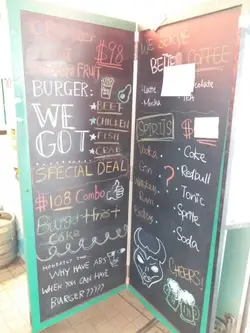 $98
FRUIT
BURGER:
WE
GOT
BEEF
CHICKEN
FISH
CRAB
SPECIAL DEAL
$108 Combo
Burger + Hot
coke
HONESTLY THO
WHY HAVE ABS
WHEN YOU CAN HAVE
BURGER?????
WE SERVE
COFFEE
-Latte
-Mocha
-TEA
SPIRITS
Vodka
Gin
Rum
?
Coke
Redbull
Tonic
Sprite
Soda
CHEERS!